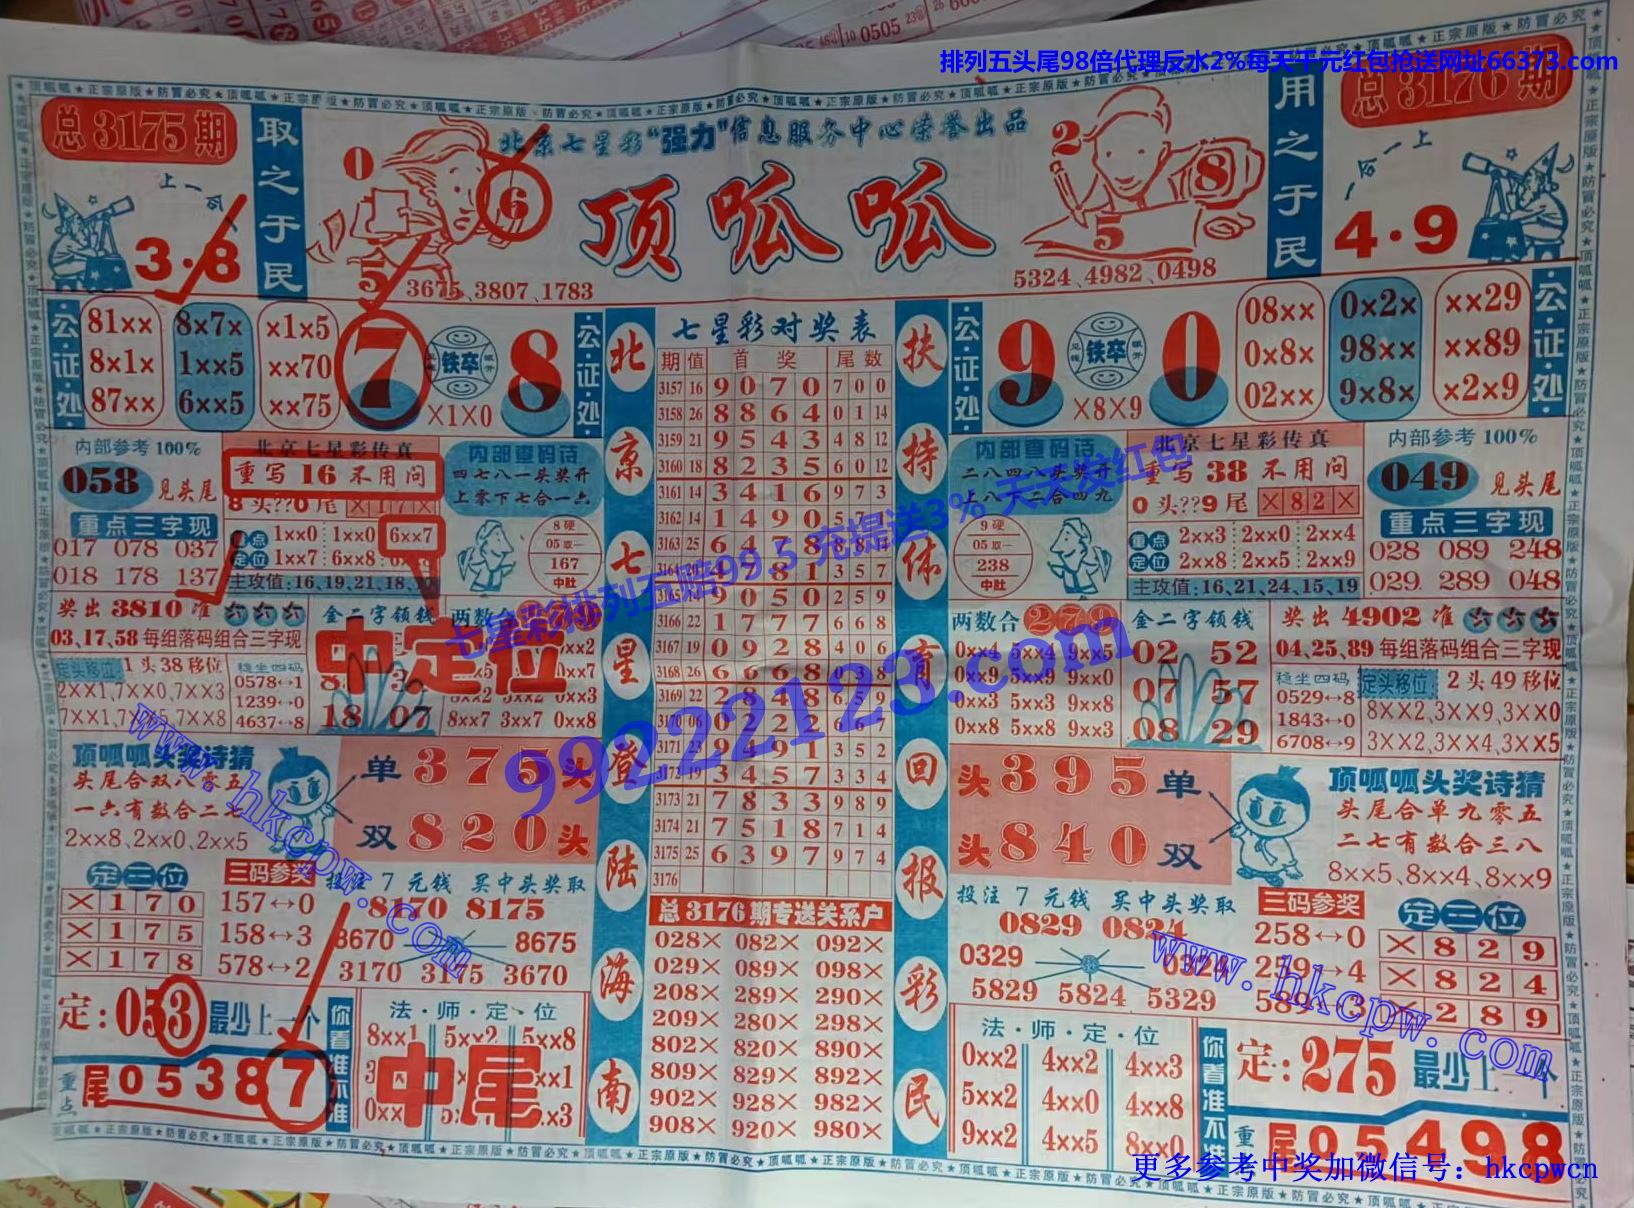 排列五头尾98倍代理反水2%每天千元红包抢送网址66373.com
总3175期
取之于民
北京七星彩"强力"信息服务中心荣誉出品
顶呱呱
用之于民
总3176期
上一分
3·8
0 6 5
3675、3807、1783
2 8 5
5324、4982、0498
上一分
4·9
公证处
81×× 8×7× ×1×5
8×1× 1××5 ××70
87×× 6××5 ××75
7 铁卒 8
×1×0
公证处
9 铁卒 0
×8×9
08×× 0×2× ××29
0×8× 98×× ××89
02×× 9×8× ×2×9
公证处
内部参考100%
058 见头尾
重点三字现
017 078 037
018 178 137
北京七星彩传真
重写16不用问
8头??0尾 ×17×
重点定位
1××0 1××0 6××7
1××7 6××8
主攻值:16,19,21,18,
内部查码诗
四七八一头奖开
上零下七合一六
8硬
05取一
167
中肚
奖出3810准 六六六
03,17,58每组落码组合三字现
定头移位 1头38移位
2××1,7××0,7××3
稳坐四码
0578↔1
1239↔0
4637↔8
金二字领钱
18 07
两数合
8××7 3××7 0××8
中定位
顶呱呱头奖诗猜
头尾合双八零五
一六有数合二七
2××8、2××0、2××5
单375头
双820头
定三位
×170
×175
×178
三码参奖
157↔0
158↔3
578↔2
投注7元钱 买中头奖取
8170 8175
8670 8675
3170 3175 3670
定:053最少上一个
重点尾05387
你看准不准
法·师·定·位
8××1 5××2 5××8
中尾
北京七星登陆海南
七星彩对奖表
期 值 首奖 尾数
3157 16 9070 700
3158 26 8864 0114
3159 21 9543 4812
3160 18 8235 6012
3161 14 3416 973
3162 14 1490
3163 25 6478
3164 20 4081 357
9050 259
3166 22 1777 668
3167 19 0928 406
3168 26 6668 038
3169 22 2848
3170 06 0222
3171 23 9491 352
3172 19 3457 334
3173 21 7833 989
3174 21 7518 714
3175 25 6397 974
3176
总3176期专送关系户
028× 082× 092×
029× 089× 098×
208× 289× 290×
209× 280× 298×
802× 820× 890×
809× 829× 892×
902× 928× 982×
908× 920× 980×
扶持体育回报彩民
内部查码诗
二八四八头奖开
上八下二合四九
9硬
05取一
238
中肚
北京七星彩传真
重写38不用问
0头??9尾 ×82×
重点定位
2××3 2××0 2××4
2××8 2××5 2××9
主攻值:16,21,24,15,19
内部参考100%
049 见头尾
重点三字现
028 089 248
029 289 048
两数合279
0××4 5××4 9××5
0××9 5××9 9××0
0××3 5××3 9××8
0××8 5××8 9××3
金二字领钱
02 52
07 57
08 29
奖出4902准 六六六
04,25,89每组落码组合三字现
稳坐四码
0529↔8
1843↔0
6708↔9
定头移位 2头49移位
8××2,3××9,3××0
3××2,3××4,3××5
头395单
头840双
顶呱呱头奖诗猜
头尾合单九零五
二七有数合三八
8××5、8××4、8××9
投注7元钱 买中头奖取
0829 0824
0329 0324
5829 5824 5329
三码参奖
258↔0
259↔4
589↔3
定三位
×829
×824
×289
法·师·定·位
0××2 4××2 4××3
5××2 4××0 4××8
9××2 4××5 8××0
你看准不准
定:275最少上一个
重点尾05498
七星彩排列五赔99.5 充提送3% 天天发红包
99222123.com
www.hkcpw.com
www.hkcpw.com
更多参考中奖加微信号：hkcpwcn